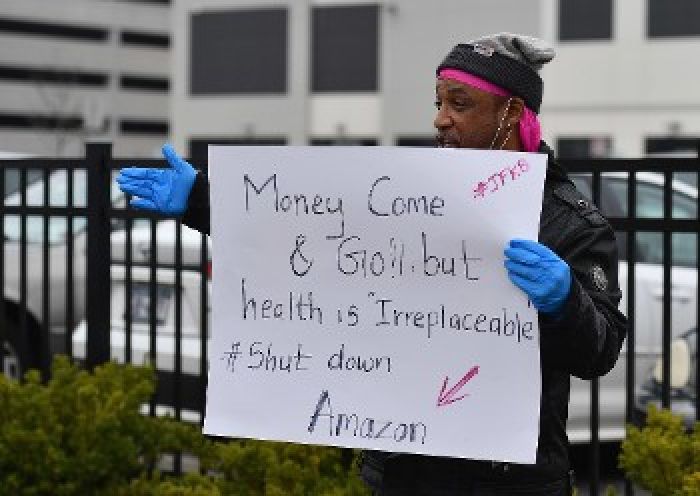 #JFK8
Money Come
& Go!!. but
health is "Irreplaceable
#Shut down
Amazon